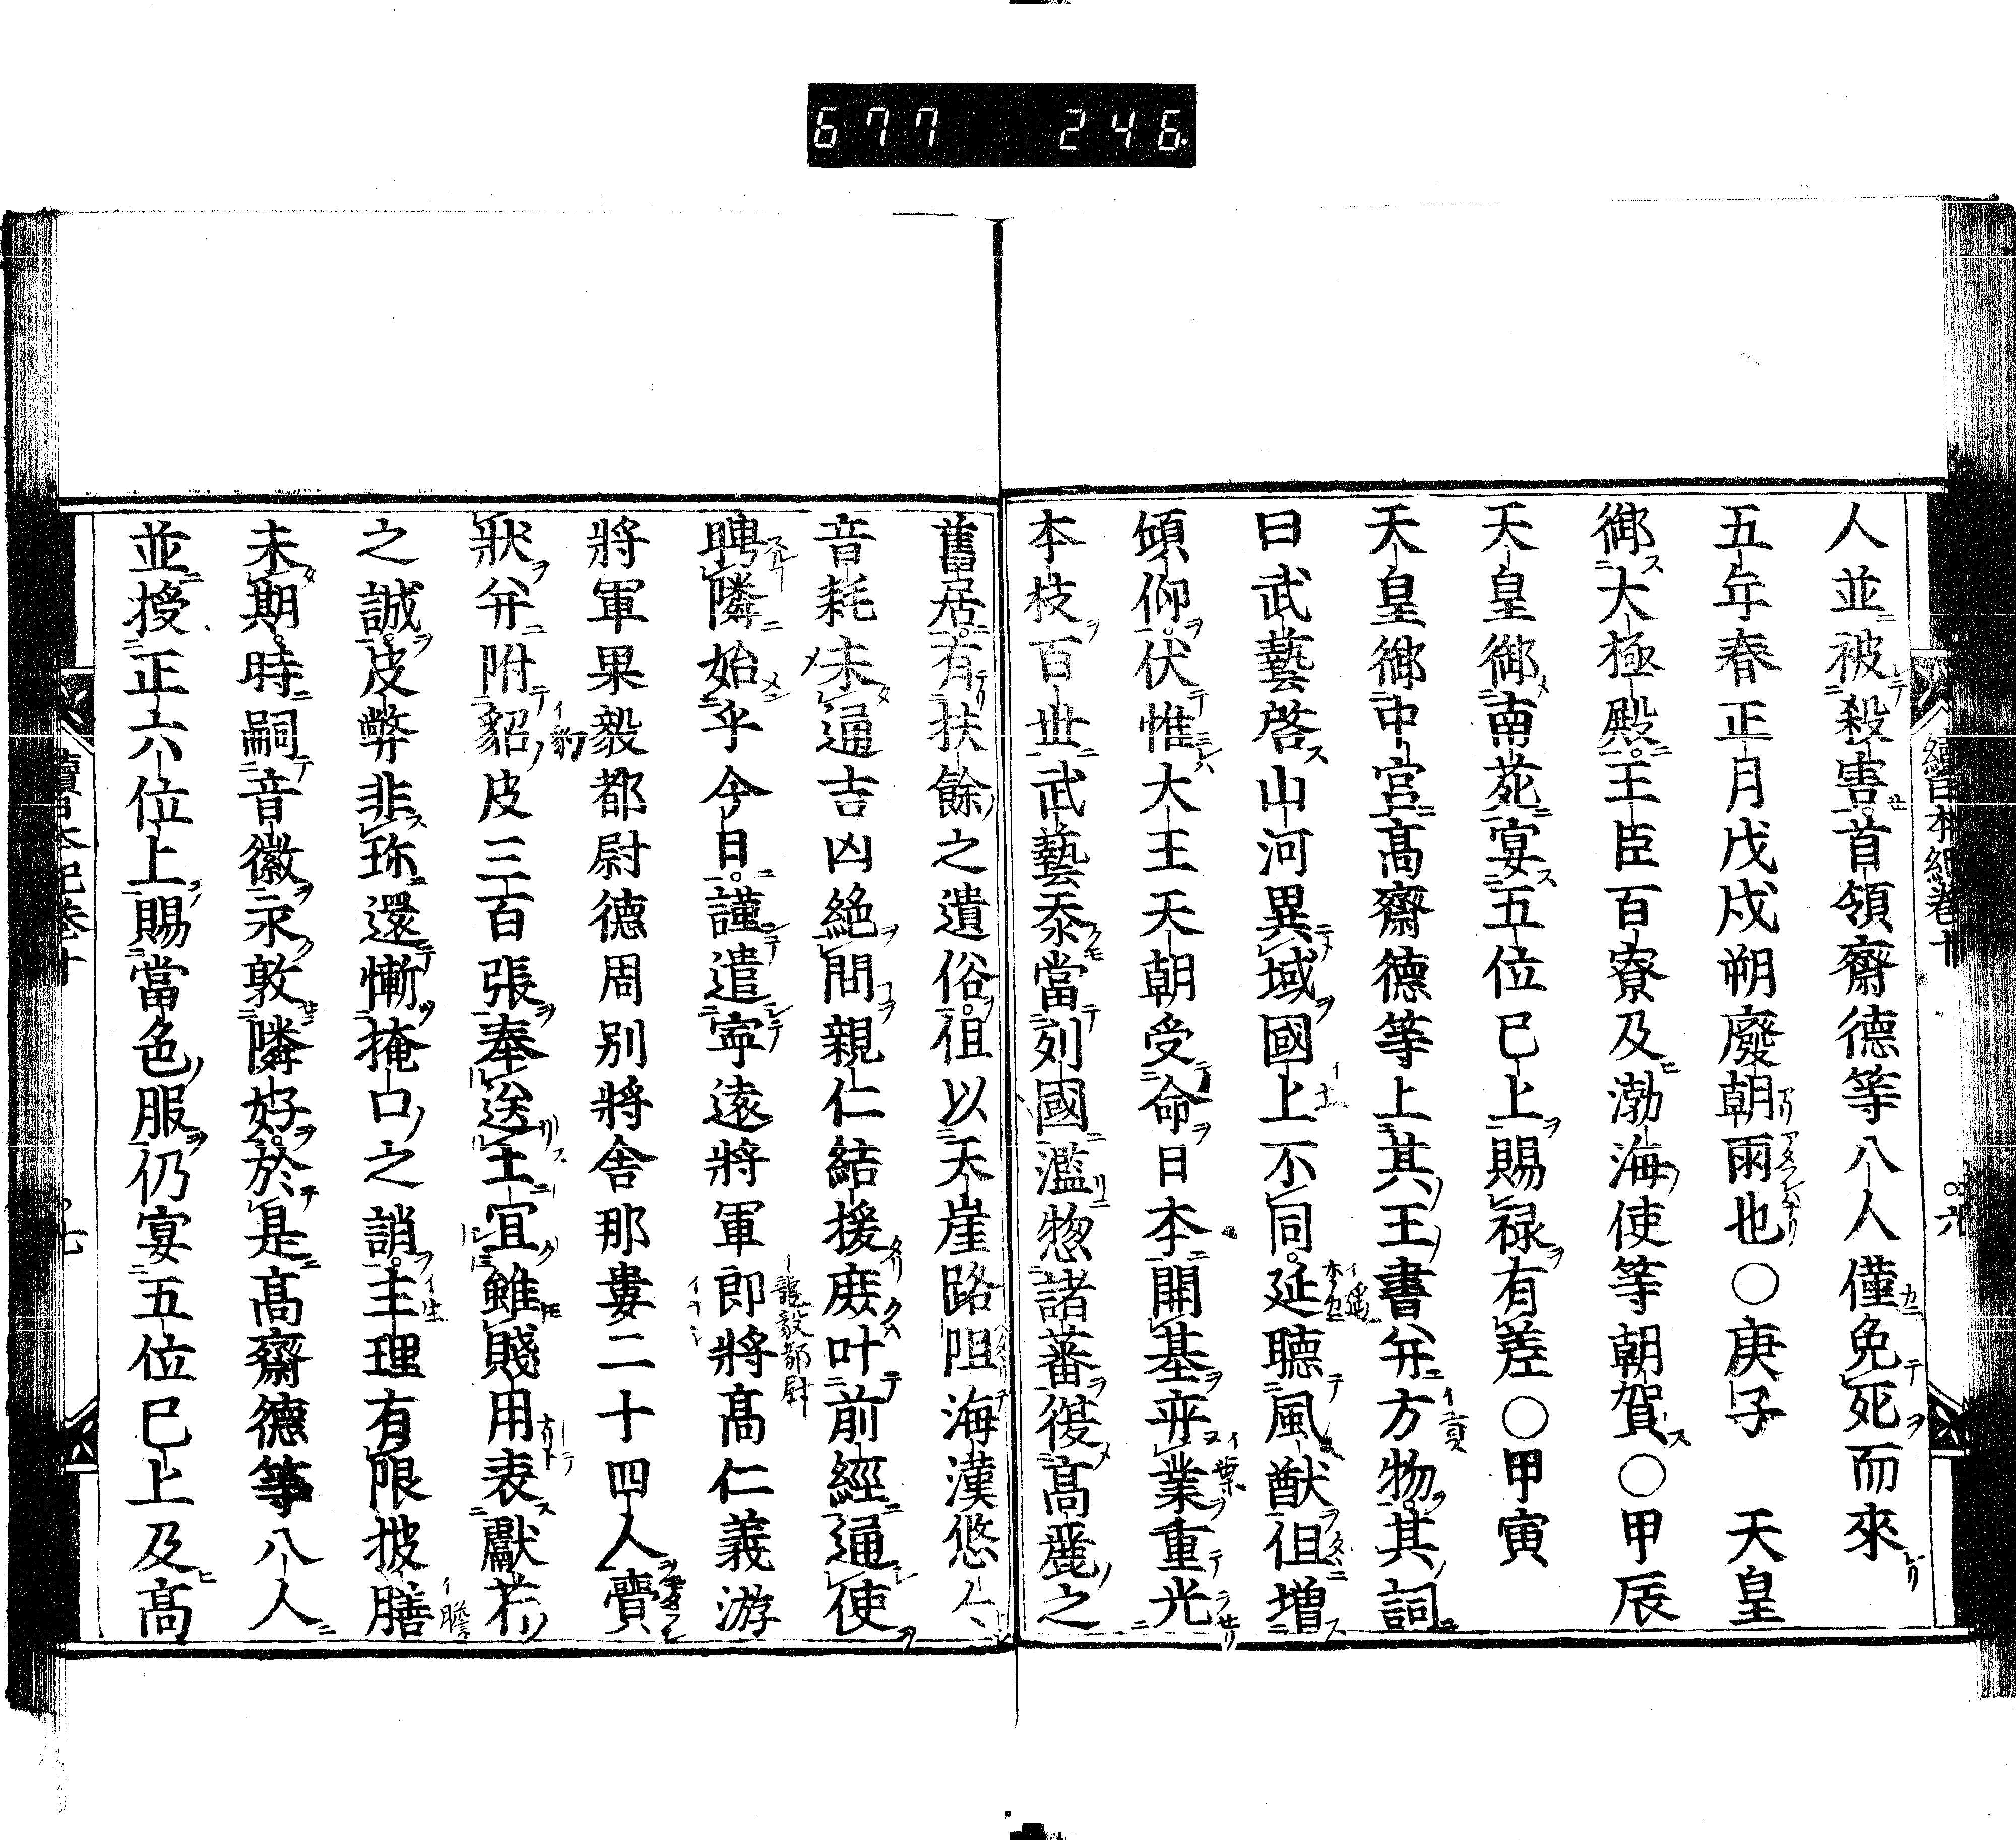 677 246
續日本紀卷十
六
人並被殺害首領齋德等八人僅免死而來
五年春正月戊戌朔廢朝雨也○庚子 天皇
御大極殿王臣百寮及渤海使等朝賀○甲辰
天皇御南苑宴五位已上賜祿有差○甲寅
天皇御中宮高齋德等上其王書并方物其詞
曰武藝啓山河異域國上不同延聽風猷但增
傾仰伏惟大王天朝受命日本開基奕業重光
本枝百世武藝忝當列國濫惣諸蕃復高麗之
舊居有扶餘之遺俗但以天崖路阻海漢悠々
音耗未通吉凶絶問親仁結援庶叶前經通使
聘隣始乎今日謹遣寧遠將軍郎將高仁義游
將軍果毅都尉德周別將舍那婁二十四人賷
狀并附貂皮三百張奉送土宜雖賤用表獻芹
之誠皮幣非珎還慚掩口之誚主理有限披膳
未期時嗣音徽永敦隣好於是高齋德等八人
並授正六位上賜當色服仍宴五位已上及高
續日本紀卷十
七